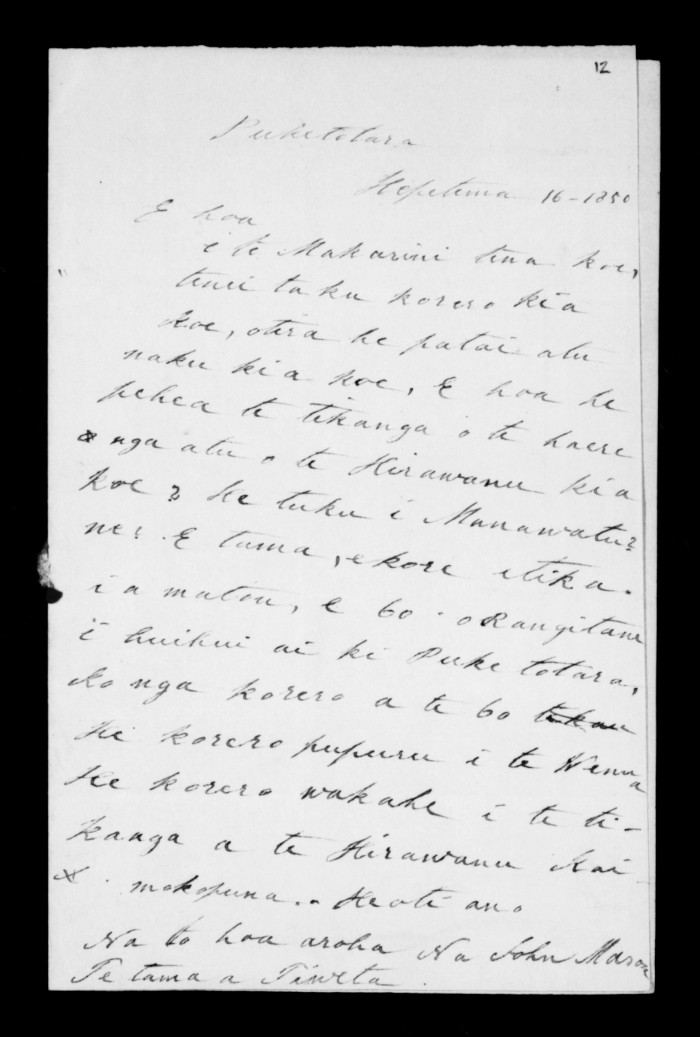 12
Puketotara
Hepetema 16-1850
E hoa
e te Makarini tena koe,
tenei taku korero kia
koe, otira he patai atu
naku kia koe, E hoa he
pehea te tikanga o te haere
nga atu o te Hirawanu kia
koe? He tuku i Manawatu?
ne? E tama, ekore etika.
i a matou, e 60. o Rangitane
i huihui ai ki Puke totara,
Ko nga korero a te 60 tekau
He korero pupuru i te Wenua
He korero wakahe i te ti-
kanga a te Hirawanu Kai-
mokopuna.. Heoti ano
Na to hoa aroha Na John
Te tama a Tiweta.